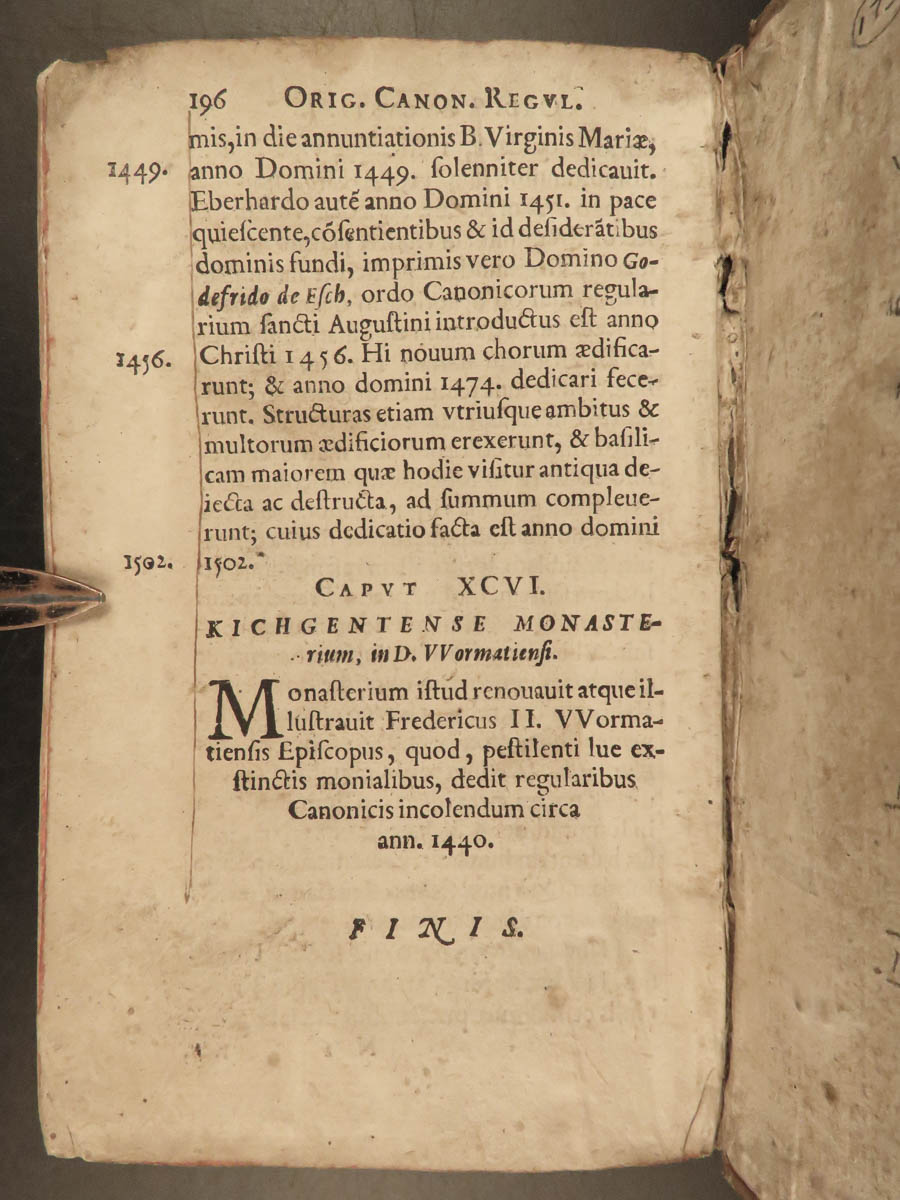 196 ORIG. CANON. REGVL.
mis,in die annuntiationis B. Virginis Mariæ,
1449. anno Domini 1449. ſolenniter dedicauit.
Eberhardoautẽ anno Domini 1451. in pace
quieſcente,cõſentientibus & id deſiderãtibus
dominis fundi, imprimis vero Domino Go-
defrido de Eſch, ordo Canonicorum regula-
rium ſancti Auguſtini introductus eſt anno
1456. Chriſti 1456. Hi nouum chorum ædifica-
runt; & anno domini 1474. dedicari fece-
runt. Structuras etiam vtriuſque ambitus &
multorum ædificiorum erexerunt, & baſili-
cam maiorem quæ hodie viſitur antiqua de-
iecta ac deſtructa, ad ſummum compleue-
runt; cuius dedicatio facta eſt anno domini
1502. 1502.
CAPVT XCVI.
KICHGENTENSE MONASTE-
rium, in D. VVormatienſi.
Monaſterium iſtud renouauit atque il-
luſtrauit Fredericus II. VVorma-
tienſis Epiſcopus, quod, peſtilenti lue ex-
ſtinctis monialibus, dedit regularibus
Canonicis incolendum circa
ann. 1440.
FINIS.